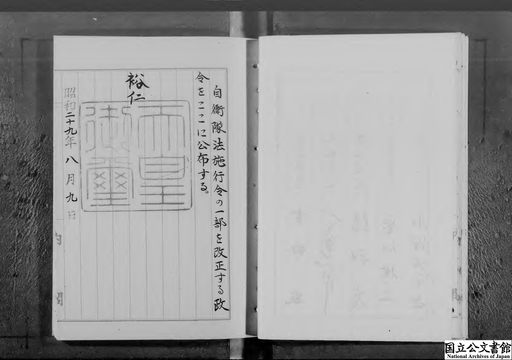 自衛隊法施行令の一部を改正する政
令をここに公布する。
裕仁
天皇
御璽
昭和二十九年八月九日
国立公文書館
National Archives of Japan